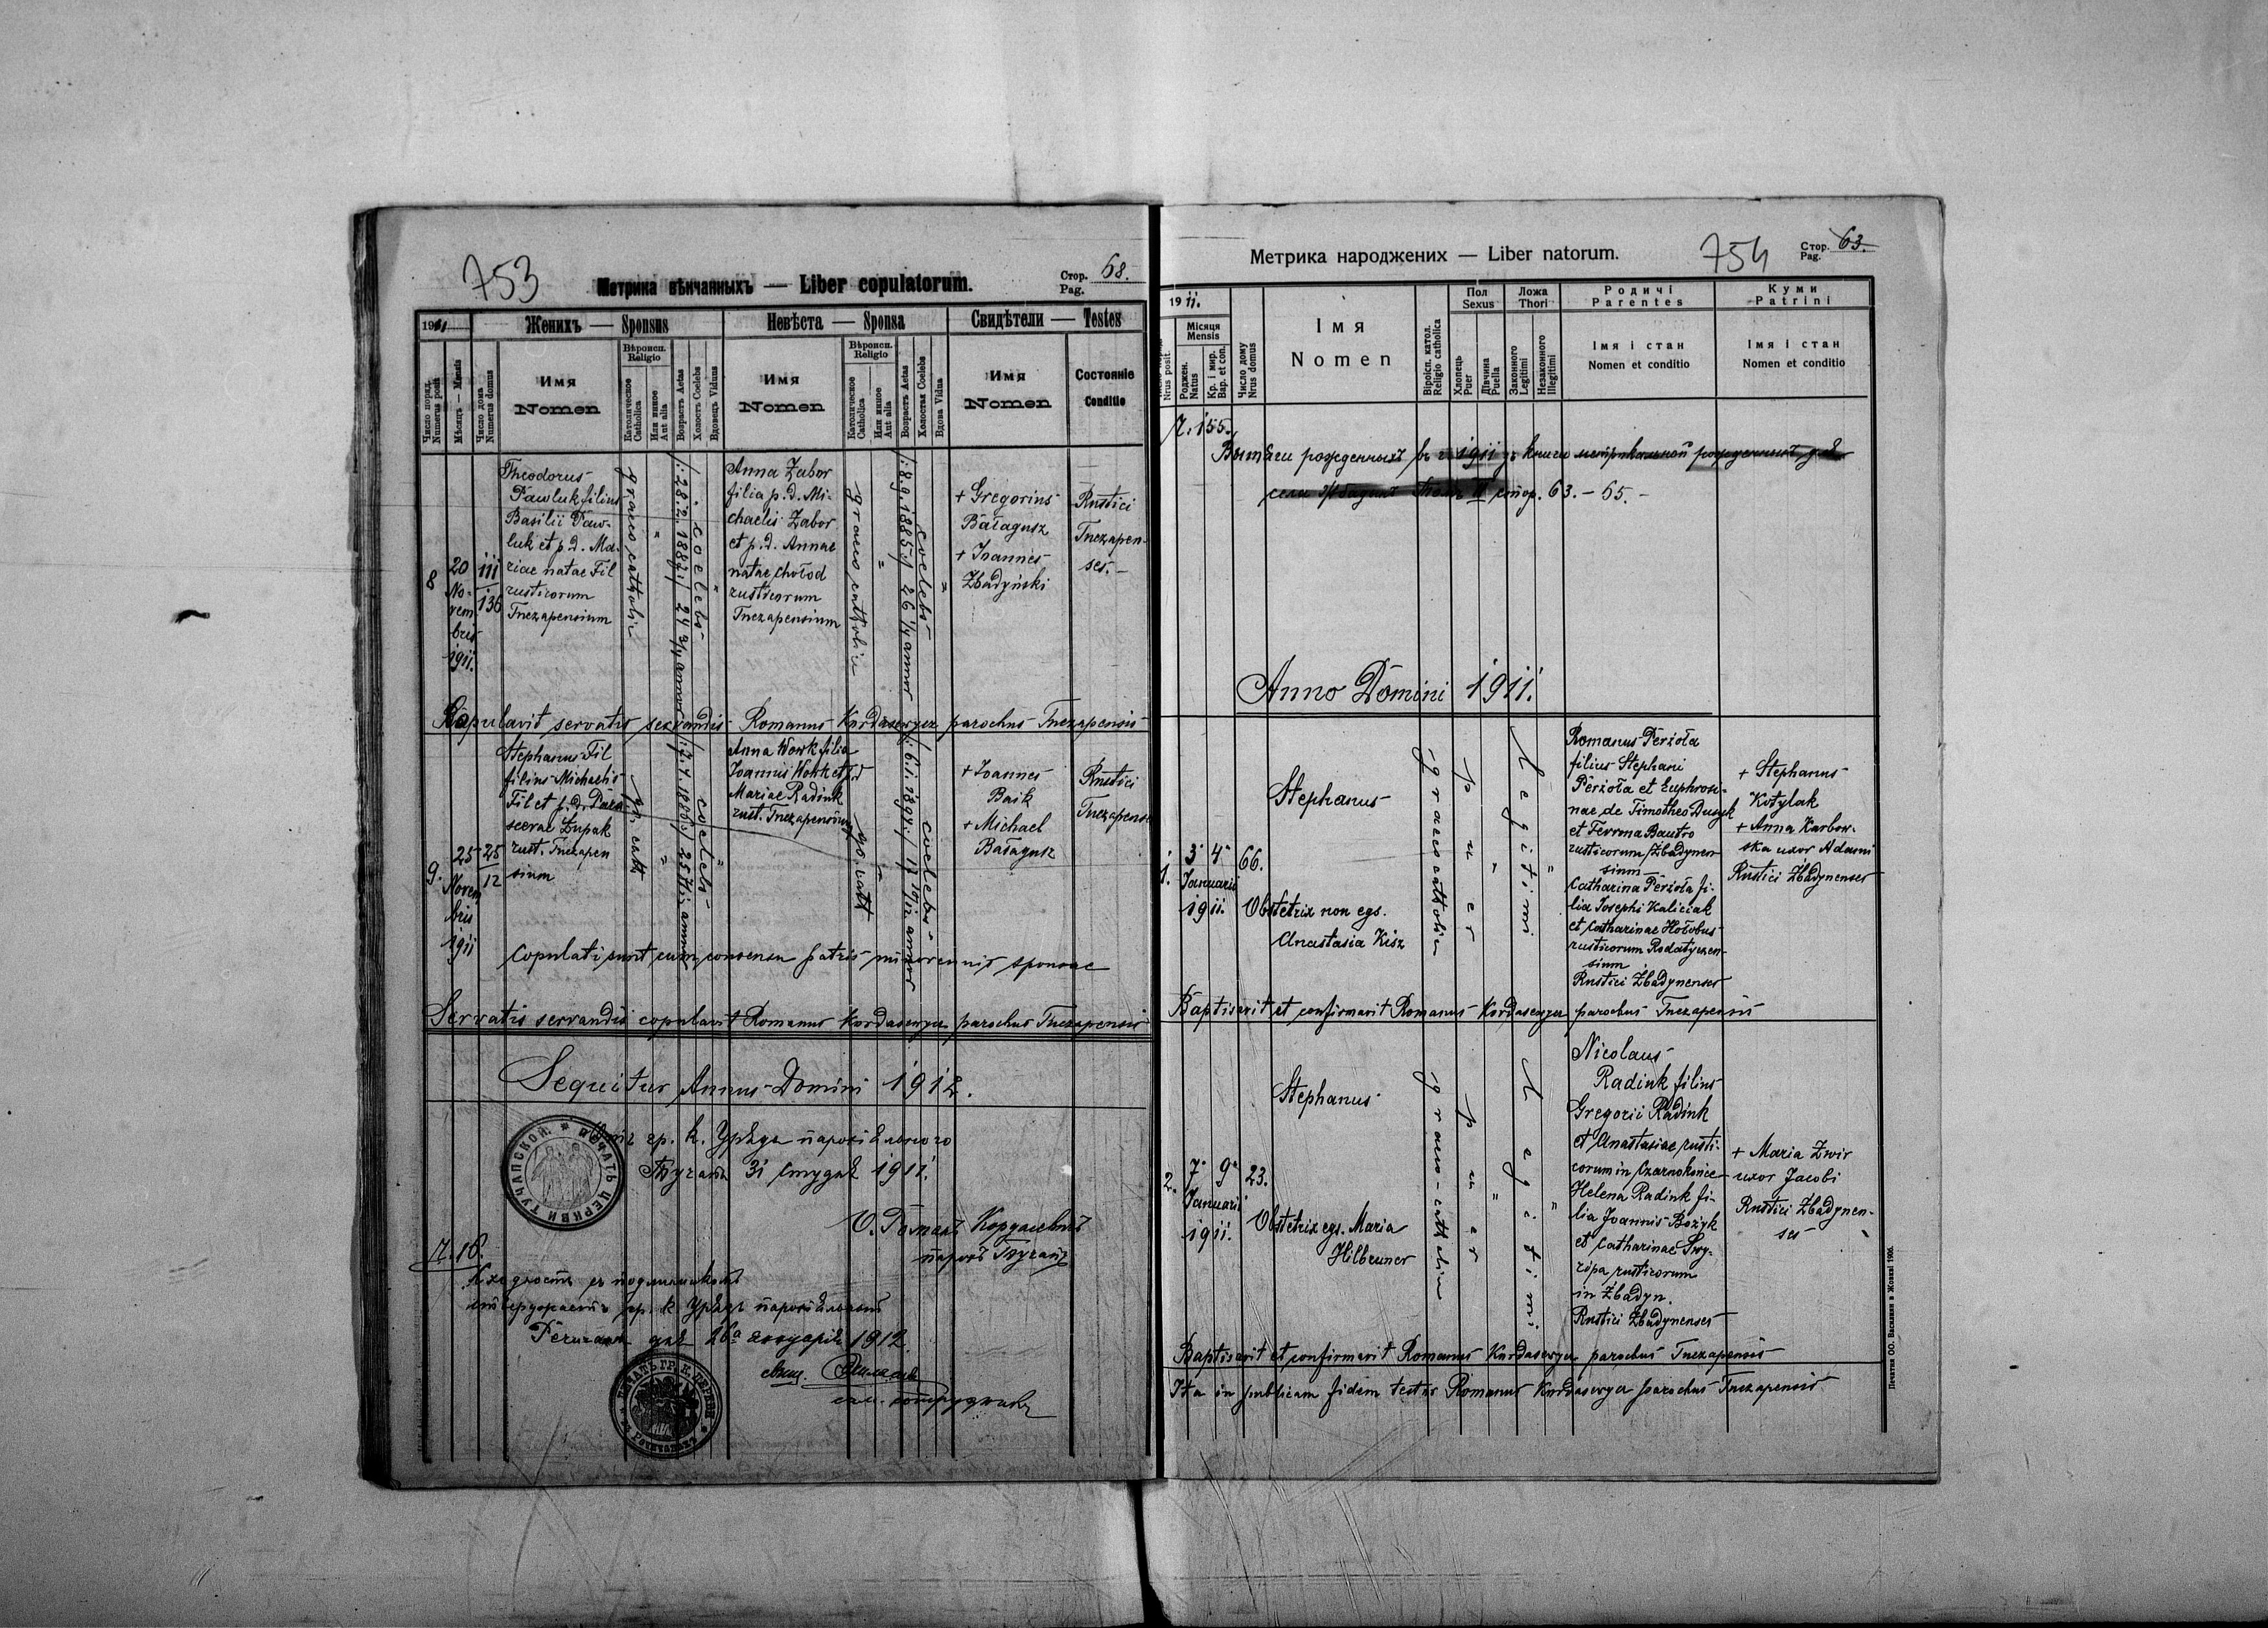 753
Метрика вѣнчанныхъ — Liber copulatorum.
Стор. 68.
Pag.
1911
Женихъ — Sponsus
Невѣста — Sponsa
Свидѣтели — Testes
Число поряд.
Numerus posit
Мѣсяцъ — Mensis
Число дома
Numerus domus
Имя
Nomen
Вѣроисп.
Religio
Католическое
Catholica
Или инное
Aut alia
Возрастъ Aetas
Холостъ Coelebs
Вдовецъ Viduus
Имя
Nomen
Вѣроисп.
Religio
Католическое
Catholica
Или инное
Aut alia
Возрастъ Aetas
Холостая Coelebs
Вдова Vidua
Имя
Nomen
Состояніе
Conditio
8
20
No-
vem
bris
1911.
111
136
Theodorus
Pawluk filius
Basilii Paw-
luk et p.d. Ma-
riae natae Fil
rusticorum
Tuczapensium
graeco catholic
"
/:28.2.1887:/ 24 3/4 annor
coelebs
"
Anna Zabor
filia p.d. Mi-
chaelis Zabor
et p.d. Annae
natae Chołod
rusticorum
Tuczapensium
graeco catholic
"
/:8.9.1885:/ 26 1/4 annor
coelebs
"
+ Gregorius
Bałagusz
+ Joannes
Zbadyński
Rustici
Tuczapen-
ses.-
Copulavit servatis servandis Romanus Kordasewycz parochus Tuczapensis
9.
25
Novem
bris
1911
25
12
Stephanus Fil
filius Michaelis
Fil et p.d. Para
scevae Żupak
rust. Tuczapen
sium
gr. cath
"
coelebs
"
Anna Wowk filia
Joannis Wowk et p.d
Mariae Radink
rust. Tuczapensium
gr. cath
"
coelebs
+ Joannes
Baik
+ Michael
Bałagusz
Rustici
Tuczapens
Copulati sunt cum consensu patris minorennis sponsae
Servatis servandis copulavit Romanus Kordasewycz parochus Tuczapensis
Sequitur Annus Domini 1912.
ПЕЧАТЬ ЦЕРКВИ ТУЧАПСКОЙ.
гр. к. Урядъ парохіяльного
Тучапы 31 студня 1911.
О. Романъ Кордасевичъ
парохъ Тучапъ
Ч. 16.
Сходность съ подлинникомъ
утверждаетъ гр. к Урядъ парохіяльный
Речичаны дня 26а януарія 1912.
свящ.
сам. сотрудникъ
ПЕЧАТЬ ГР. К. ЦЕРКВИ
754
Метрика народжених — Liber natorum.
Стор. 63.
Pag.
1911.
Nrus posit.
Місяця
Mensis
Роджен.
Natus
Кр. і мир.
Bap. et con.
Число дому
Nrus domus
Імя
Nomen
Віроісп. катол.
Religio catholica
Пол
Sexus
Хлопець
Puer
Дівчина
Puella
Ложа
Thori
Законного
Legitimi
Незаконного
Illegitimi
Родичі
Parentes
Імя і стан
Nomen et conditio
Куми
Patrini
Імя і стан
Nomen et conditio
Ч. 155.
Вытягъ рожденныхъ въ г. 1911 зъ книги метрикальной рожденныхъ для
села Томъ III стор. 63. - 65. -
Anno Domini 1911.
1.
3 4
Januarii
1911.
66.
Stephanus
Obstetrix non egs.
Anastasia Kisz
graeco catholic
puer
"
Legitimi
"
Romanus Perżoła
filius Stephani
Perżoła et Euphrosi-
nae de Timotheo Dusyk
et Fevrona Bautro
rusticorum Zbadynen-
sium
Catharina Perżoła fi-
lia Josephi Kaliciak
et Catharinae Hołobus
rusticorum Rodatyczen-
sium
Rustici Zbadynenses
+ Stephanus
Kotylak
+ Anna Karbow-
ska uxor Adami
Rustici Zbadynenses
Baptisavit et confirmavit Romanus Kordasewycz parochus Tuczapensis
2.
7 9
Januarii
1911.
23.
Stephanus
Obstetrix egs. Maria
Hilbruner
graeco-catholic
puer
"
Legitimi
"
Nicolaus
Radink filius
Gregorii Radink
et Anastasiae rusti-
corum in Czarnokońce
Helena Radink fi-
lia Joannis Bożyk
et Catharinae Pry-
ropa rusticorum
in Zbadyn.
Rustici Zbadynenses
+ Maria Zwir
uxor Jacobi
Rustici Zbadynen-
ses
Baptisavit et confirmavit Romanus Kordasewycz parochus Tuczapensis
Ita in publicam fidem testor Romanus Kordasewycz parochus Tuczapensis
Печатня ОО. Василиян в Жовкві 1906.